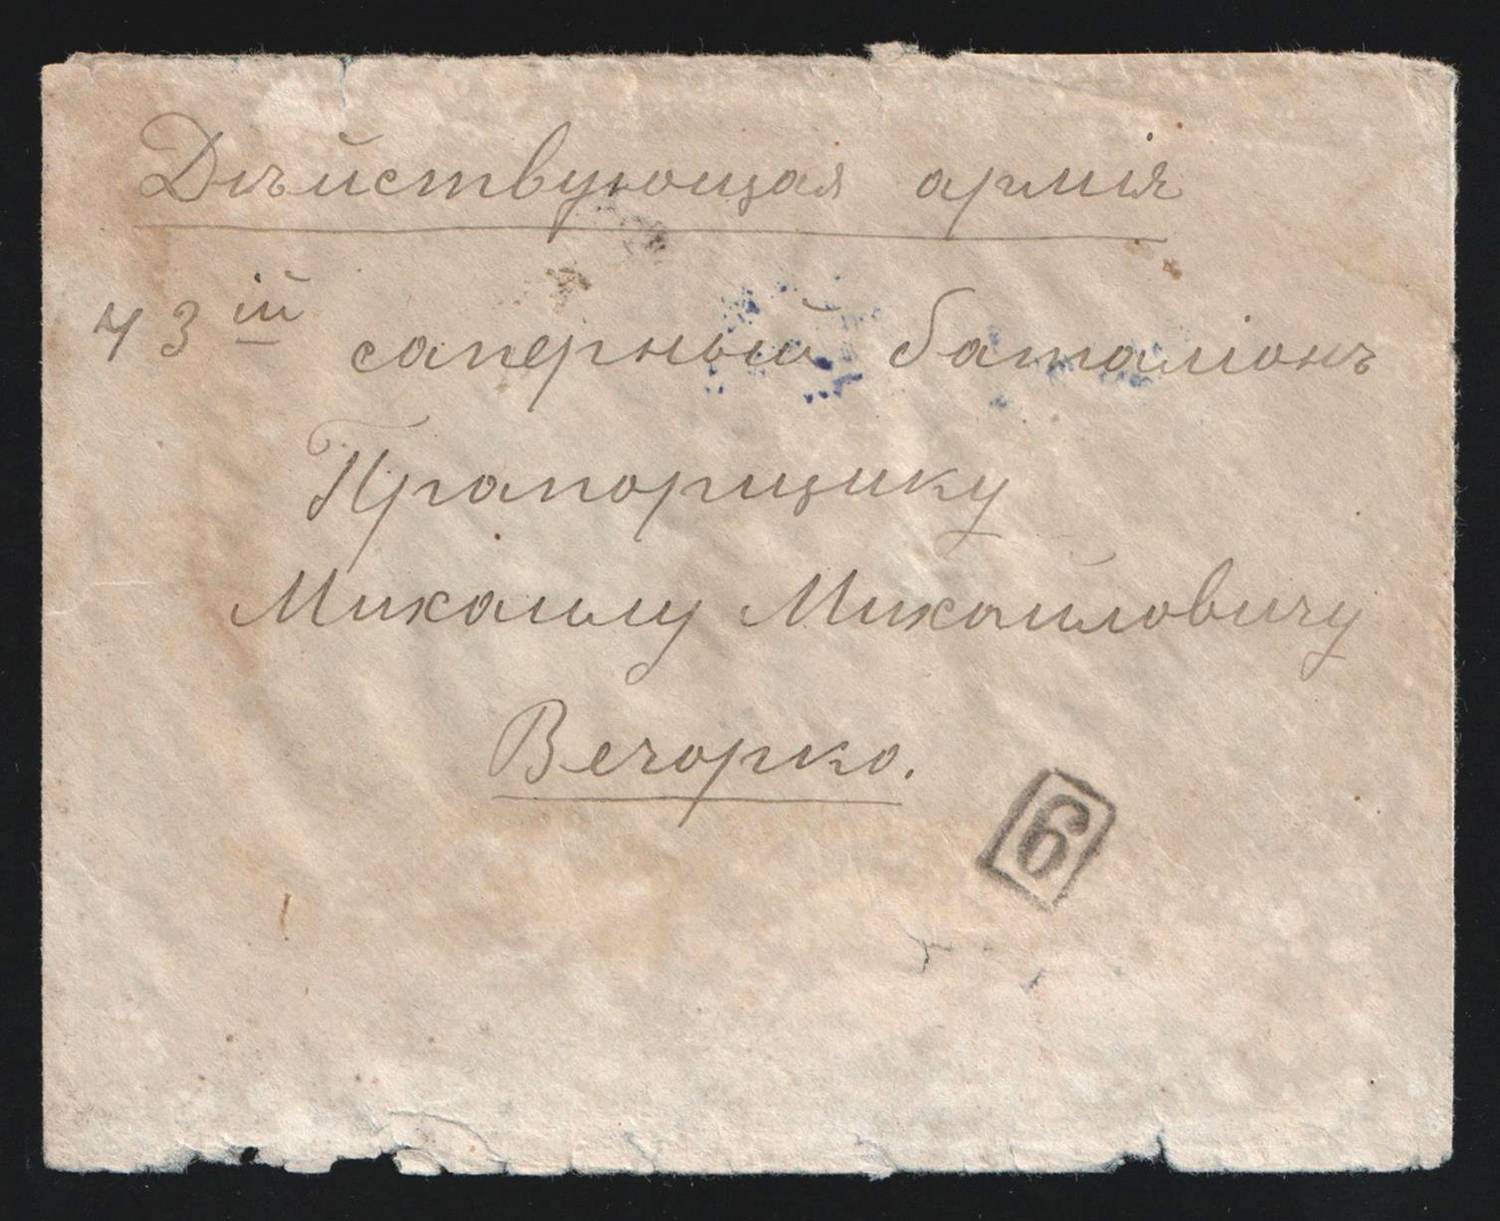 Дѣйствующая армія
43ій саперный баталіонъ
Прапорщику
Михаилу Михайловичу
Вечорко.
6